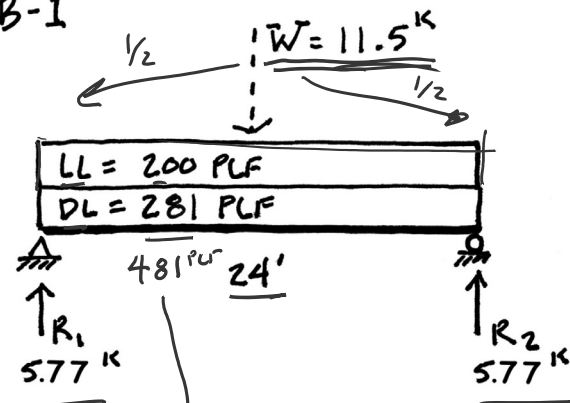 B-1
1/2
W = 11.5 K
1/2
LL = 200 PLF
DL = 281 PLF
481 PLF
24'
R1
5.77 K
R2
5.77 K